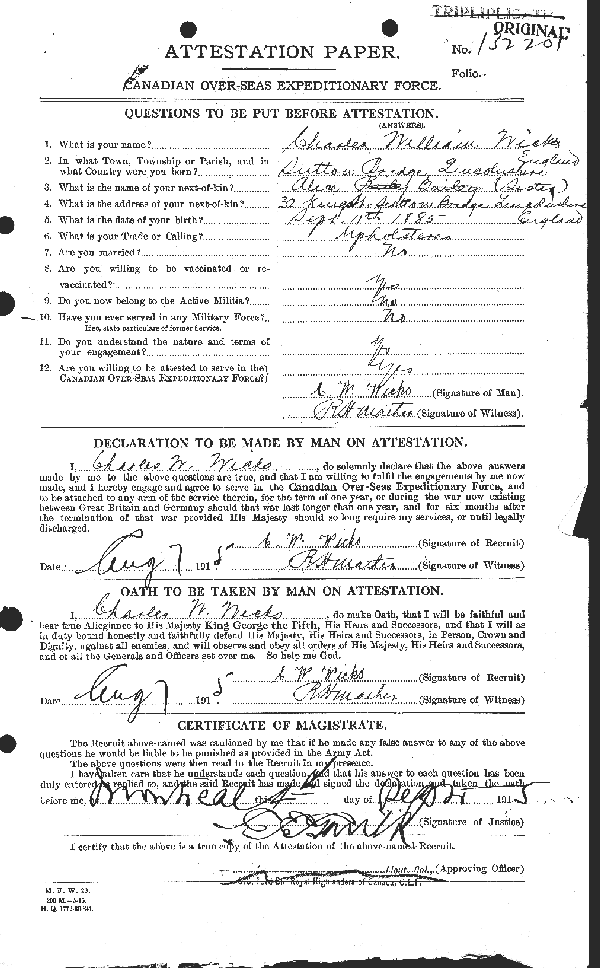 TRIPLICATE
ORIGINAL
ATTESTATION PAPER.
No. 132201
Folio.
CANADIAN OVER-SEAS EXPEDITIONARY FORCE.
QUESTIONS TO BE PUT BEFORE ATTESTATION.
(ANSWERS).
1. What is your name? Charles William Wicks
2. In what Town, Township or Parish, and in what Country were you born? Sutton Bridge, Lincolnshire England
3. What is the name of your next-of-kin? (Sister)
4. What is the address of your next-of-kin? Sutton Bridge Lincolnshire England
5. What is the date of your birth? Sept. 11th 1885
6. What is your Trade or Calling? Upholsterer
7. Are you married? No
8. Are you willing to be vaccinated or re-vaccinated? Yes
9. Do you now belong to the Active Militia? No
10. Have you ever served in any Military Force? No
If so, state particulars of former Service.
11. Do you understand the nature and terms of your engagement? Yes
12. Are you willing to be attested to serve in the CANADIAN OVER-SEAS EXPEDITIONARY FORCE? Yes
C W Wicks (Signature of Man).
(Signature of Witness).
DECLARATION TO BE MADE BY MAN ON ATTESTATION.
I, Charles W. Wicks, do solemnly declare that the above answers
made by me to the above questions are true, and that I am willing to fulfil the engagements by me now
made, and I hereby engage and agree to serve in the Canadian Over-Seas Expeditionary Force, and
to be attached to any arm of the service therein, for the term of one year, or during the war now existing
between Great Britain and Germany should that war last longer than one year, and for six months after
the termination of that war provided His Majesty should so long require my services, or until legally
discharged.
C W Wicks (Signature of Recruit)
Date Aug 7 1915 (Signature of Witness)
OATH TO BE TAKEN BY MAN ON ATTESTATION.
I, Charles W. Wicks, do make Oath, that I will be faithful and
bear true Allegiance to His Majesty King George the Fifth, His Heirs and Successors, and that I will as
in duty bound honestly and faithfully defend His Majesty, His Heirs and Successors, in Person, Crown and
Dignity, against all enemies, and will observe and obey all orders of His Majesty, His Heirs and Successors,
and of all the Generals and Officers set over me. So help me God.
C W Wicks (Signature of Recruit)
Date Aug 7 1915 (Signature of Witness)
CERTIFICATE OF MAGISTRATE.
The Recruit above-named was cautioned by me that if he made any false answer to any of the above
questions he would be liable to be punished as provided in the Army Act.
The above questions were then read to the Recruit in my presence.
I have taken care that he understands each question, and that his answer to each question has been
duly entered as replied to, and the said Recruit has made and signed the declaration and taken the oath
before me, Montreal this day of Sept 1915
(Signature of Justice)
I certify that the above is a true copy of the Attestation of the above-named Recruit.
Lieut. Col. (Approving Officer)
Royal Highlanders of Canada, C.E.F.
M. F. W. 23.
200 M.—5-15.